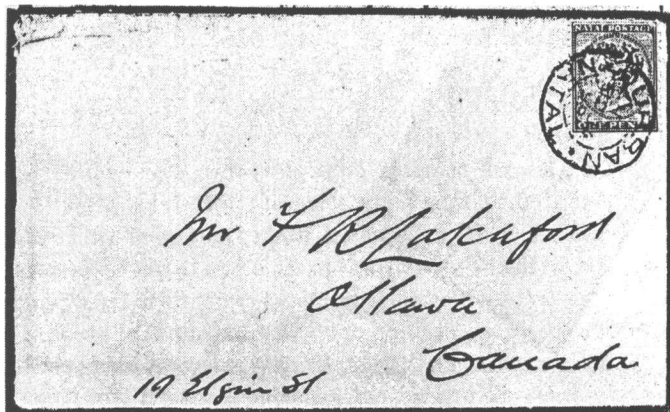 NATAL POSTAGE
ONE PENNY
DURBAN
NATAL
Mr F R Latchford
Ottawa
Canada
19 Elgin St